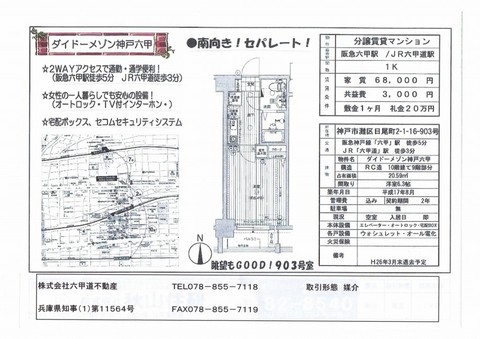 ダイドーメゾン神戸六甲
☆2WAYアクセスで通勤・通学便利!
(阪急六甲駅徒歩5分 JR六甲道徒歩3分)
☆女性の一人暮らしでも安心の設備!
(オートロック・TV付インターホン・)
☆宅配ボックス、セコムセキュリティシステム
●南向き!セパレート!
眺望もGOOD!903号室
分譲賃貸マンション
阪急六甲駅 /JR六甲道駅
1K
家 賃 68,000 円
共益費 3,000 円
敷金1ヶ月 礼金20万円
神戸市灘区日尾町2-1-16-903号
阪急神戸線「六甲」駅 徒歩5分
JR「六甲道」駅 徒歩3分
物件名 ダイドーメゾン神戸六甲
構造 RC造 10階建て9階部分
占有面積 20.59㎡
間取り 洋室6.3帖
築年月日 平成17年8月
管理費 込み 契約期間 2年
駐車場 無
現況 空室 入居日 即
本体設備 エレベーター・オートロック・宅配BOX
各戸設備 ウォシュレット・オール電化
火災保険
備考 H26年3月末退去予定
株式会社六甲道不動産 TEL078-855-7118 取引形態 媒介
兵庫県知事(1)第11564号 FAX078-855-7119